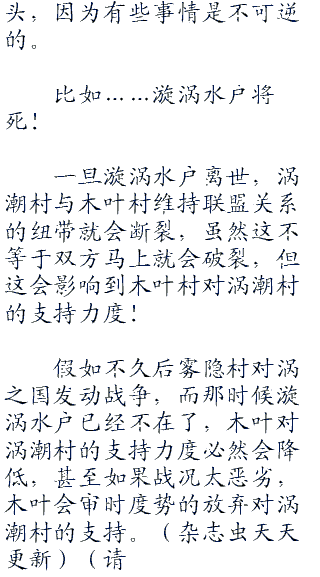 头，因为有些事情是不可逆
的。
比如……漩涡水户将
死！
一旦漩涡水户离世，涡
潮村与木叶村维持联盟关系
的纽带就会断裂，虽然这不
等于双方马上就会破裂，但
这会影响到木叶村对涡潮村
的支持力度！
假如不久后雾隐村对涡
之国发动战争，而那时候漩
涡水户已经不在了，木叶对
涡潮村的支持力度必然会降
低，甚至如果战况太恶劣，
木叶会审时度势的放弃对涡
潮村的支持。（杂志虫天天
更新）（请